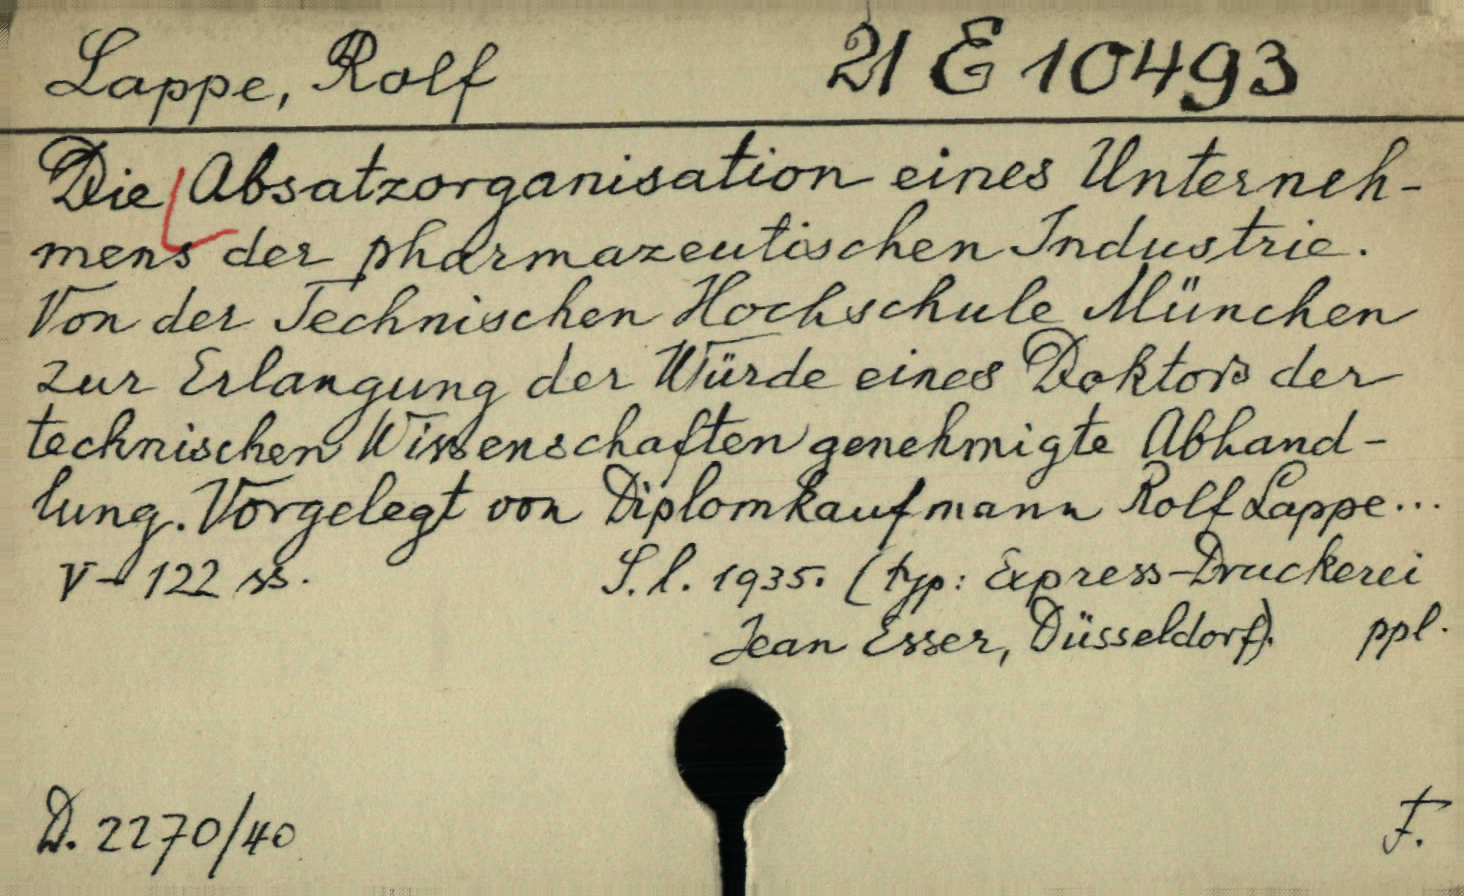 Lappe, Rolf 21 E 10493
Die Absatzorganisation eines Unterneh-
mens der pharmazeutischen Industrie.
Von der Technischen Hochschule München
zur Erlangung der Würde eines Doktors der
technischen Wissenschaften genehmigte Abhand-
lung. Vorgelegt von Diplomkaufmann Rolf Lappe...
V-122 ss. S.l. 1935. (typ: Express-Druckerei
Jean Esser, Düsseldorf). ppl.
D. 2270/40 F.